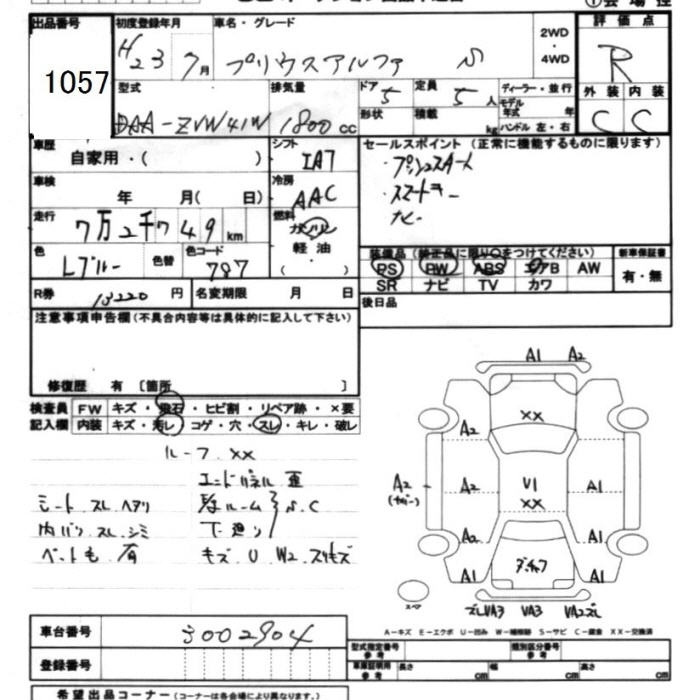 出品番号 初度登録年月 車名・グレード 2WD・4WD 評価点
1057 H23 7月 プリウスアルファ S R
型式 排気量 ドア 5 定員 5人 ディーラー・並行 外装 内装
DAA-ZVW41W 1800cc 形状 積載 kg モデル年式 年 ハンドル 左・右 C C
車歴 シフト セールスポイント (正常に機能するものに限ります)
自家用・( ) IA7 ・プッシュスタート
車検 冷房 ・スマートキー
年 月( 日) AAC ・ナビー
走行 燃料
7万2千749km ガソリン
色 色替 色コード 軽油 装備品 (純正品に限り○をつけてください) 新車保証書
Lブルー 787 ・( ) PS PW ABS エアB AW 有・無
R券 13220円 名変期限 月 日 SR ナビ TV カワ
注意事項申告欄 (不具合内容等は具体的に記入して下さい) 後日品
修復歴 有 〔箇所 〕
検査員 FW キズ・飛石・ヒビ割・リペア跡・×要
記入欄 内装 キズ・汚レ・コゲ・穴・スレ・キレ・破レ
ルーフ.XX
エンドパネル 歪
シート スレ ヘタリ
S.C
内バリ スレ シミ 下廻り
ペット毛 有 キズ U W2 スリキズ
A1 A2
XX
A2
A2 A2 V1 A1
XX
A2 A1
A1 A1
スペア VA3 VA3 VA2
A-キズ E-エクボ U-凹み W-補修跡 S-サビ C-腐食 XX-交換済
車台番号 3002904
型式指定番号 参考 類別区分番号 参考
登録番号 車庫証明用 参考 長さ cm 幅 cm 高さ cm
希望出品コーナー (コーナーは各会場により異なります。)